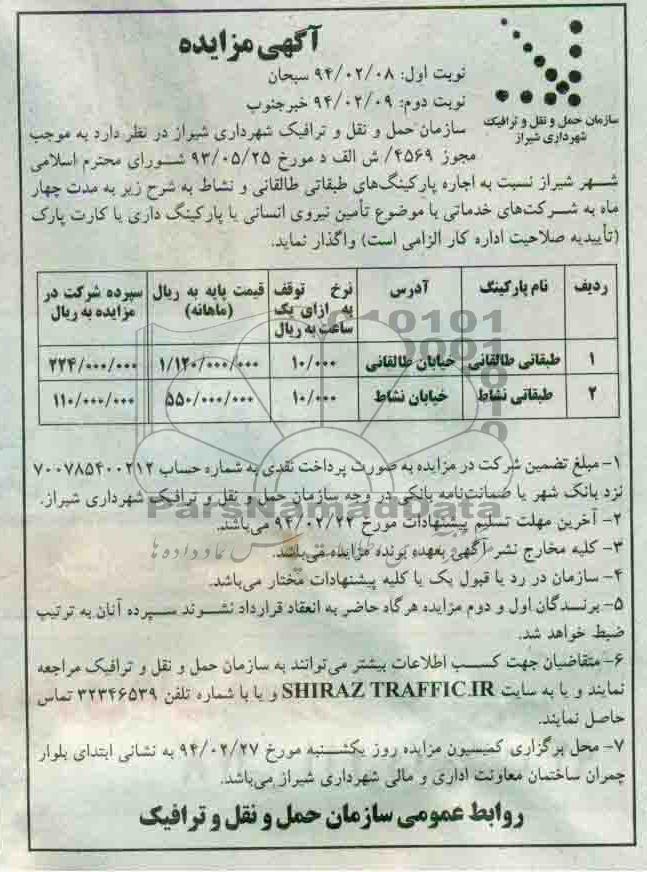 آگهی مزایده
نوبت اول: ۹۴/۰۲/۰۸ سبحان
نوبت دوم: ۹۴/۰۲/۰۹ خبرجنوب
سازمان حمل و نقل و ترافیک
شهرداری شیراز
سازمان حمل و نقل و ترافیک شهرداری شیراز در نظر دارد به موجب
مجوز ۴۵۶۹/ ش الف د مورخ ۹۳/۰۵/۲۵ شورای محترم اسلامی
شهر شیراز نسبت به اجاره پارکینگ‌های طبقاتی طالقانی و نشاط به شرح زیر به مدت چهار
ماه به شرکت‌های خدماتی با موضوع تأمین نیروی انسانی یا پارکینگ داری یا کارت پارک
(تأییدیه صلاحیت اداره کار الزامی است) واگذار نماید.
ردیف | نام پارکینگ | آدرس | نرخ توقف به ازای یک ساعت به ریال | قیمت پایه به ریال (ماهانه) | سپرده شرکت در مزایده به ریال
۱ | طبقاتی طالقانی | خیابان طالقانی | ۱۰/۰۰۰ | ۱/۱۲۰/۰۰۰/۰۰۰ | ۲۲۴/۰۰۰/۰۰۰
۲ | طبقاتی نشاط | خیابان نشاط | ۱۰/۰۰۰ | ۵۵۰/۰۰۰/۰۰۰ | ۱۱۰/۰۰۰/۰۰۰
۱- مبلغ تضمین شرکت در مزایده به صورت پرداخت نقدی به شماره حساب ۷۰۰۷۸۵۴۰۰۲۱۲
نزد بانک شهر یا ضمانت‌نامه بانکی در وجه سازمان حمل و نقل و ترافیک شهرداری شیراز.
ParsNamadData
۲- آخرین مهلت تسلیم پیشنهادات مورخ ۹۴/۰۲/۲۲ می‌باشد.
۳- کلیه مخارج نشر آگهی بعهده برنده مزایده می‌باشد.
۴- سازمان در رد یا قبول یک یا کلیه پیشنهادات مختار می‌باشد.
۵- برندگان اول و دوم مزایده هرگاه حاضر به انعقاد قرارداد نشوند سپرده آنان به ترتیب
ضبط خواهد شد.
۶- متقاضیان جهت کسب اطلاعات بیشتر می‌توانند به سازمان حمل و نقل و ترافیک مراجعه
نمایند و یا به سایت SHIRAZ TRAFFIC.IR و یا با شماره تلفن ۳۲۳۴۶۵۳۹ تماس
حاصل نمایند.
۷- محل برگزاری کمیسیون مزایده روز یکشنبه مورخ ۹۴/۰۲/۲۷ به نشانی ابتدای بلوار
چمران ساختمان معاونت اداری و مالی شهرداری شیراز می‌باشد.
روابط عمومی سازمان حمل و نقل و ترافیک